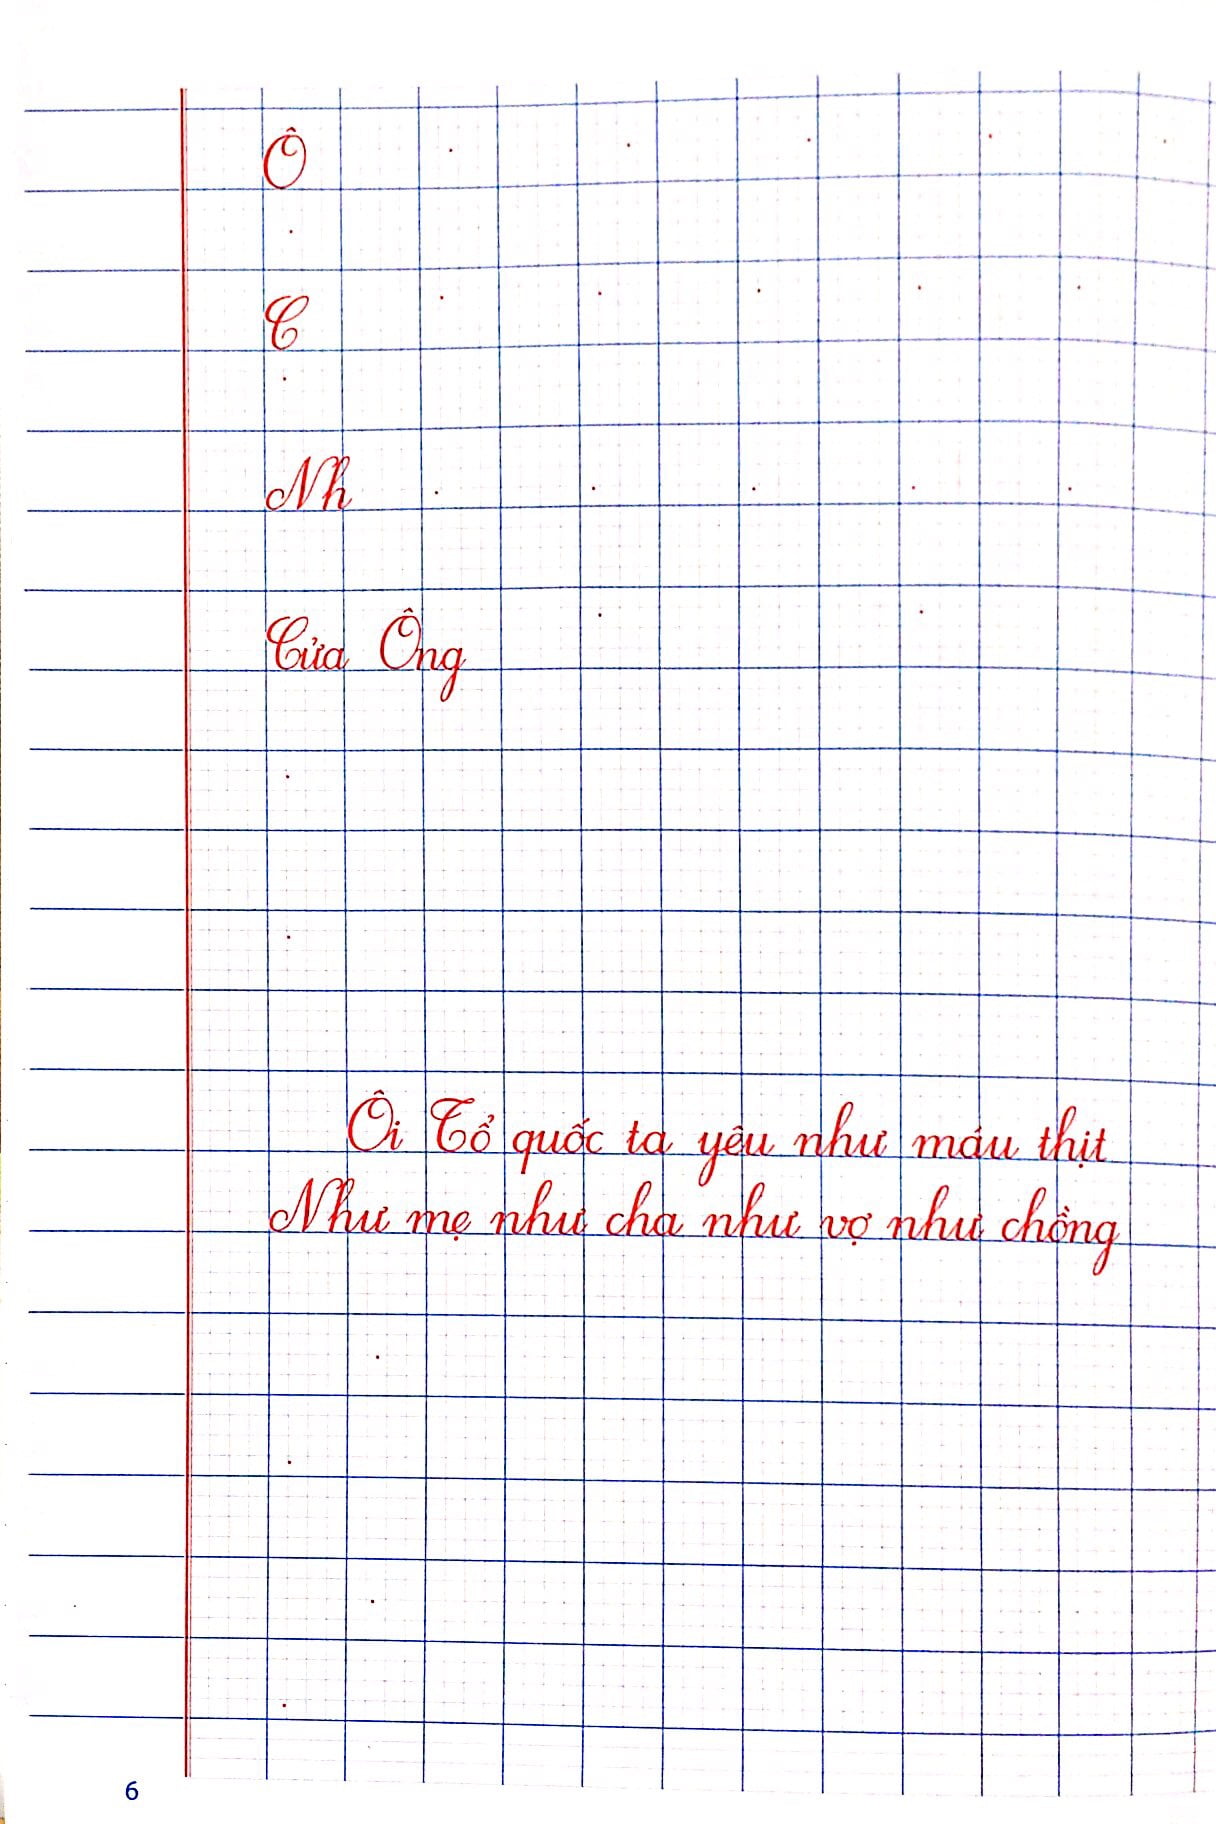 Ô
C
Nh
Cửa Ông
Ôi Tổ quốc ta yêu như máu thịt
Như mẹ như cha như vợ như chồng
6